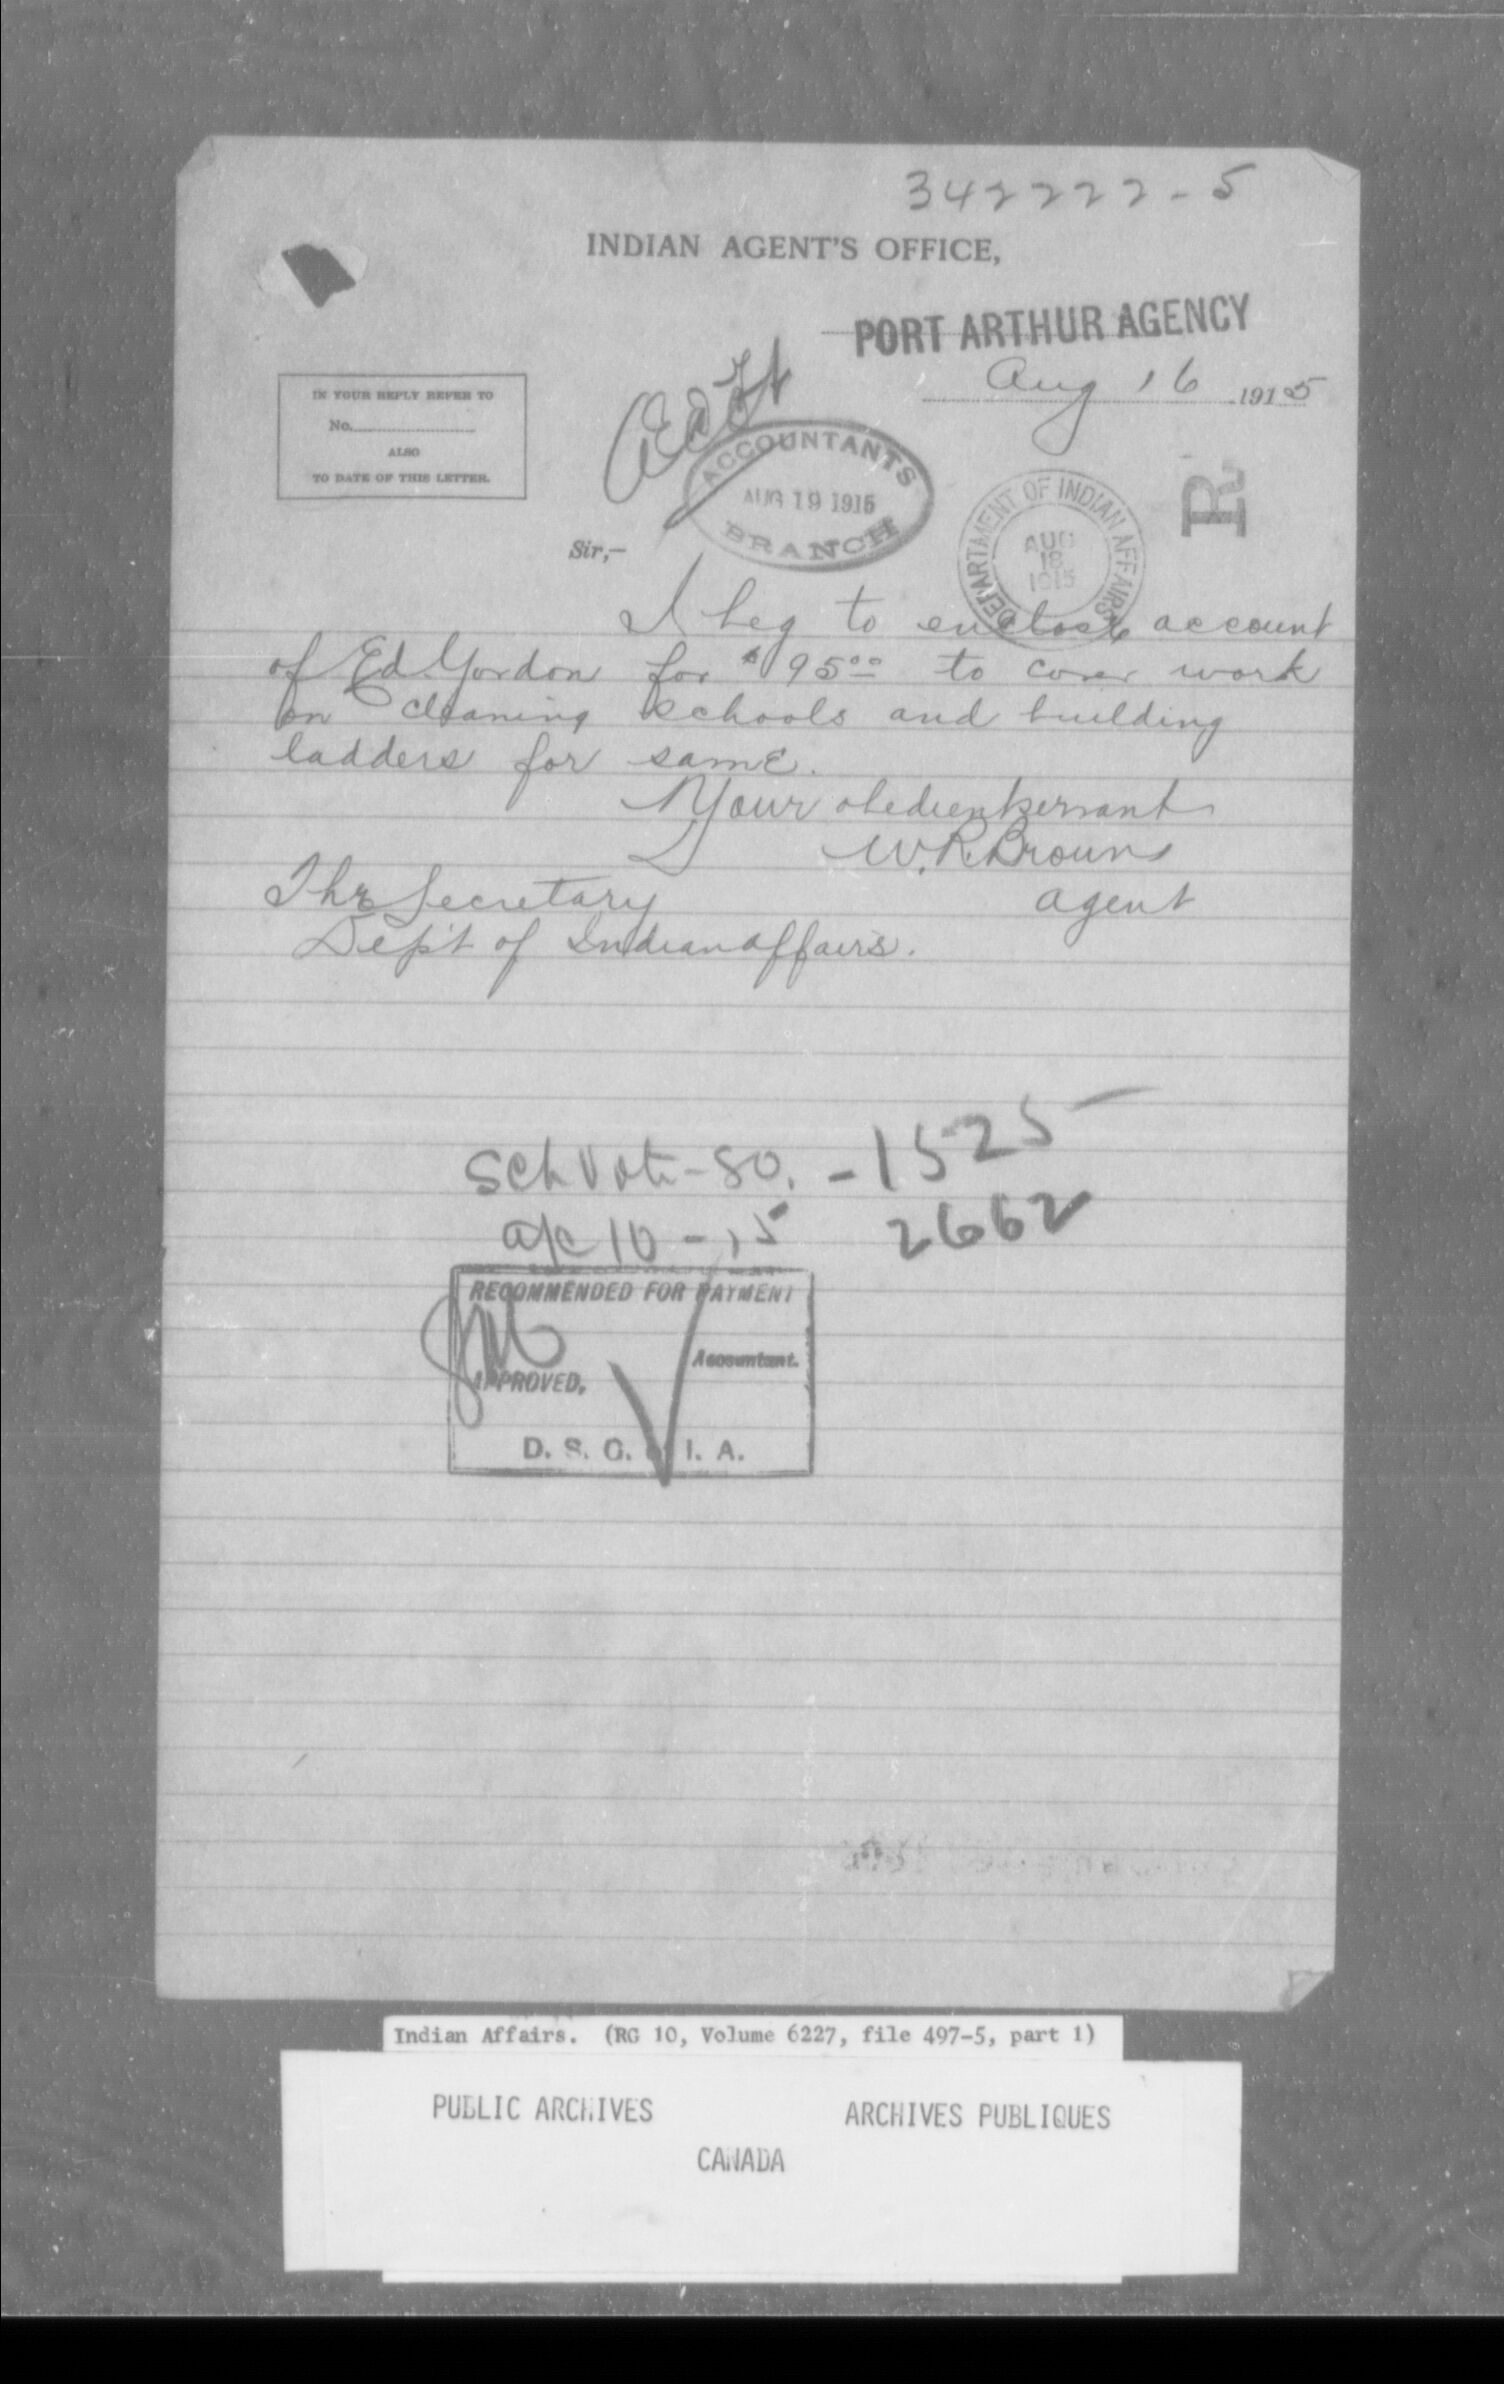 342222-5
INDIAN AGENT'S OFFICE,
PORT ARTHUR AGENCY
Aug 16 1915
IN YOUR REPLY REFER TO
No.
ALSO
TO DATE OF THIS LETTER.
ACCOUNTANTS
AUG 19 1915
BRANCH
DEPARTMENT OF INDIAN AFFAIRS
AUG
18
1915
R.
Sir,-
I beg to enclose account
of Ed. Gordon for $95.00 to cover work
on cleaning schools and building
ladders for same.
Your obedient servant
W.R. Brown
Agent
The Secretary
Dep't of Indian Affairs.
Sch Vote - 80. - 1525
a/c 10 - 15 2662
RECOMMENDED FOR PAYMENT
Accountant.
APPROVED,
D. S. G. of I. A.
Indian Affairs. (RG 10, Volume 6227, file 497-5, part 1)
PUBLIC ARCHIVES ARCHIVES PUBLIQUES
CANADA